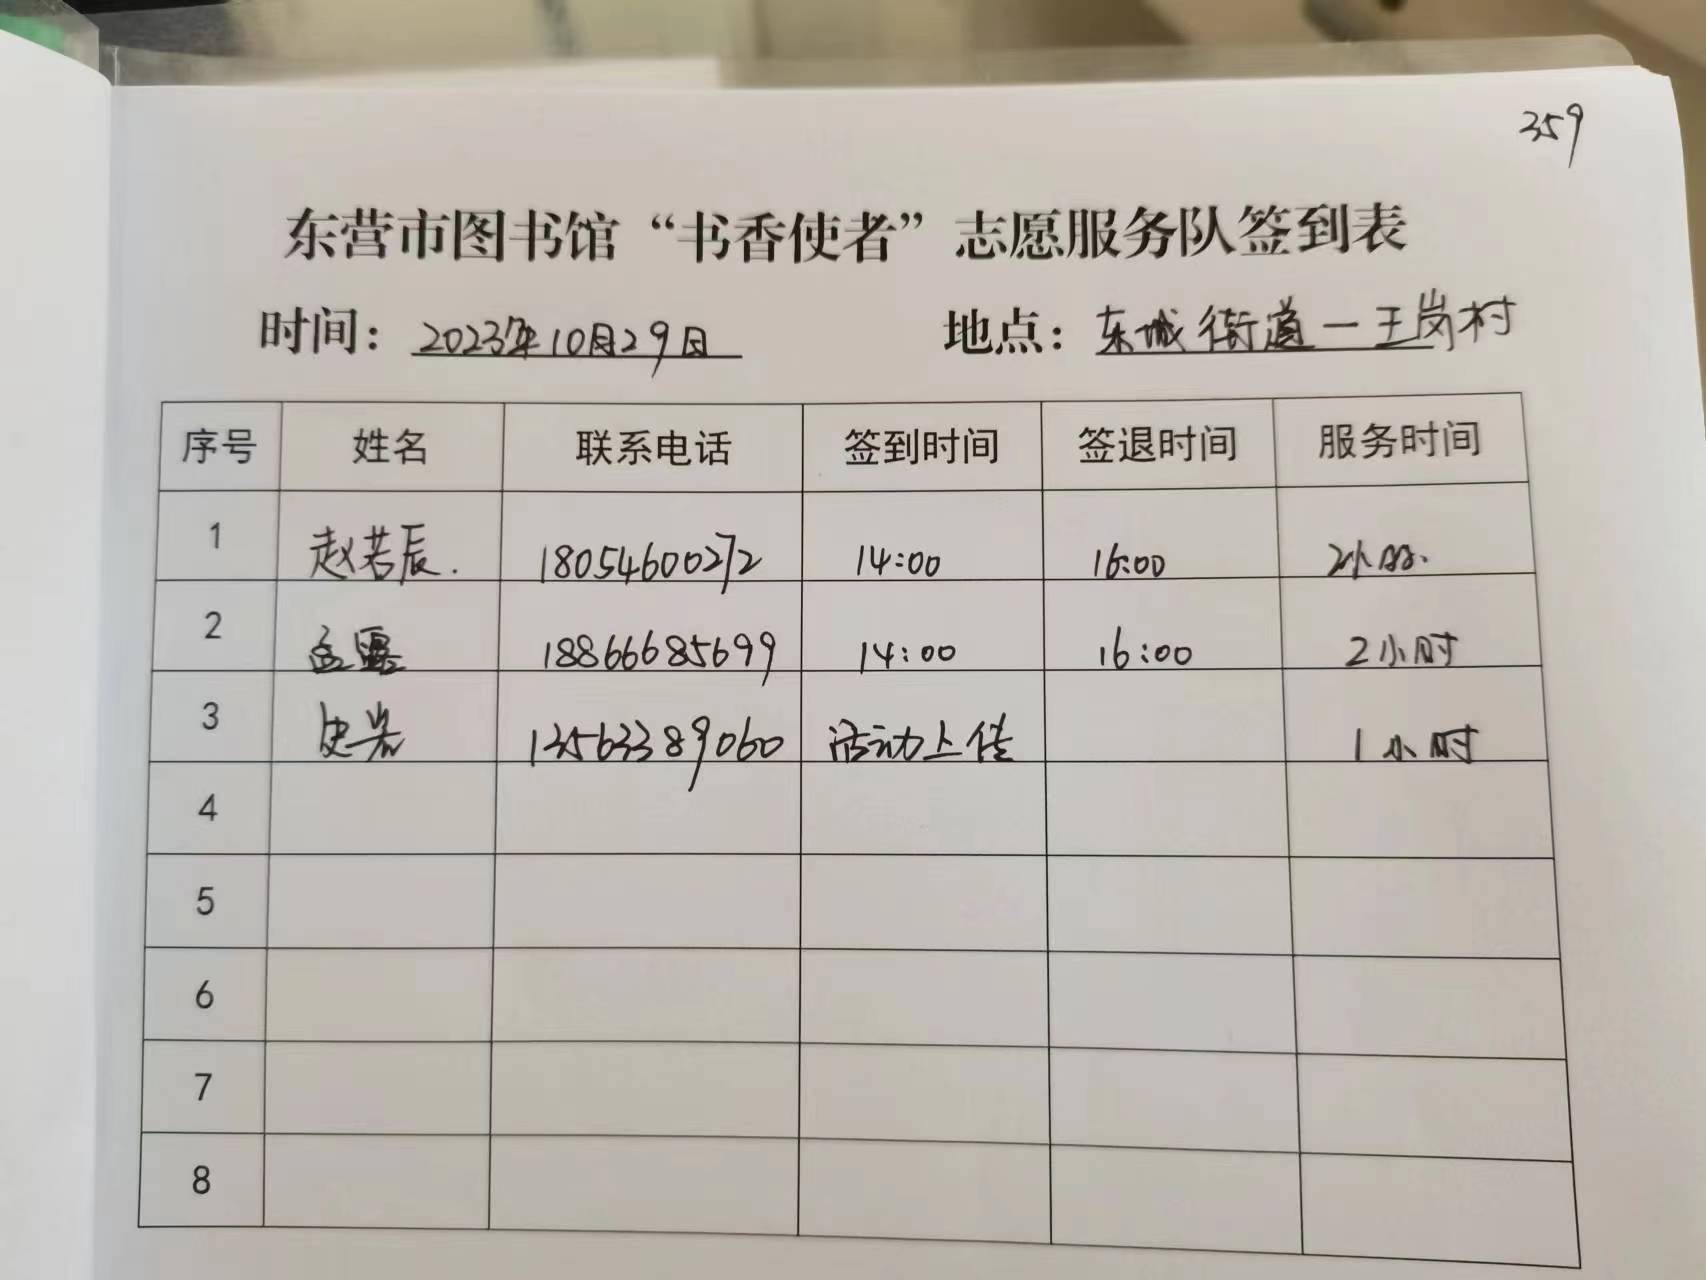 359
东营市图书馆“书香使者”志愿服务队签到表
时间：2023年10月29日 地点：东城街道一王岗村
序号 姓名 联系电话 签到时间 签退时间 服务时间
1 赵若辰. 18054600272 14:00 16:00 2小时.
2 孟露 18866685699 14:00 16:00 2小时
3 史岩 13563389060 活动上传 1小时
4
5
6
7
8